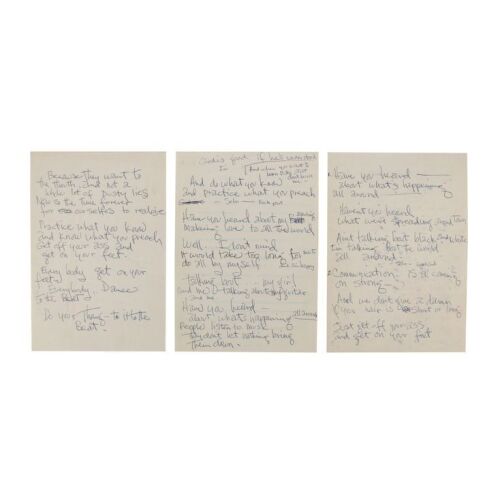 Because they want to
the truth and not a
whole lot of Dusty lies
Now is the time forever
for ourselves to realize
Practice what you know
and know what you preach
Get off your ass and
get on your feet.
Every body get on your
feet
Everybody Dance
to the Beat
Do your Thing to it to the
Beat.
And do what you know
and practice what you preach
Solo
Have you heard about my
making love to all the world
Well I dont mind
It would take too long for
do all by myself
talking bout my girl
Have you heard
about what's happening all around
People listen to music
They dont let nothing bring
Them down.
Have you heard
about what's happening
all around
Havent you heard
what were spreading around
Aint talking bout black and white
Im talking bout the world
all around
Communication: IS all coming
on strong
And we dont give a damn
if your hair is short or long
Just get off your ass
and get on your feet